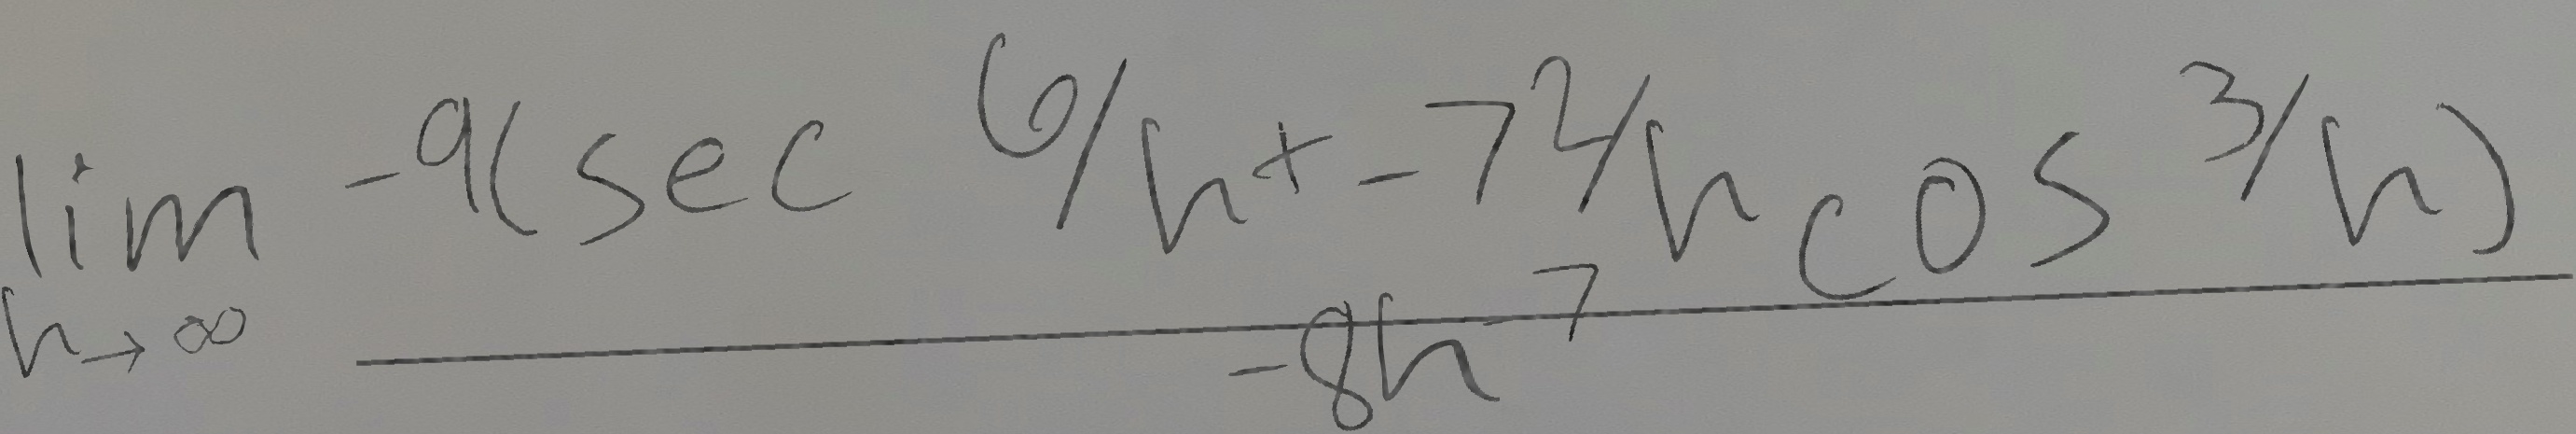 lim -9(sec 6/h + -7 2/h cos 3/h)
h→∞ -8h^-7